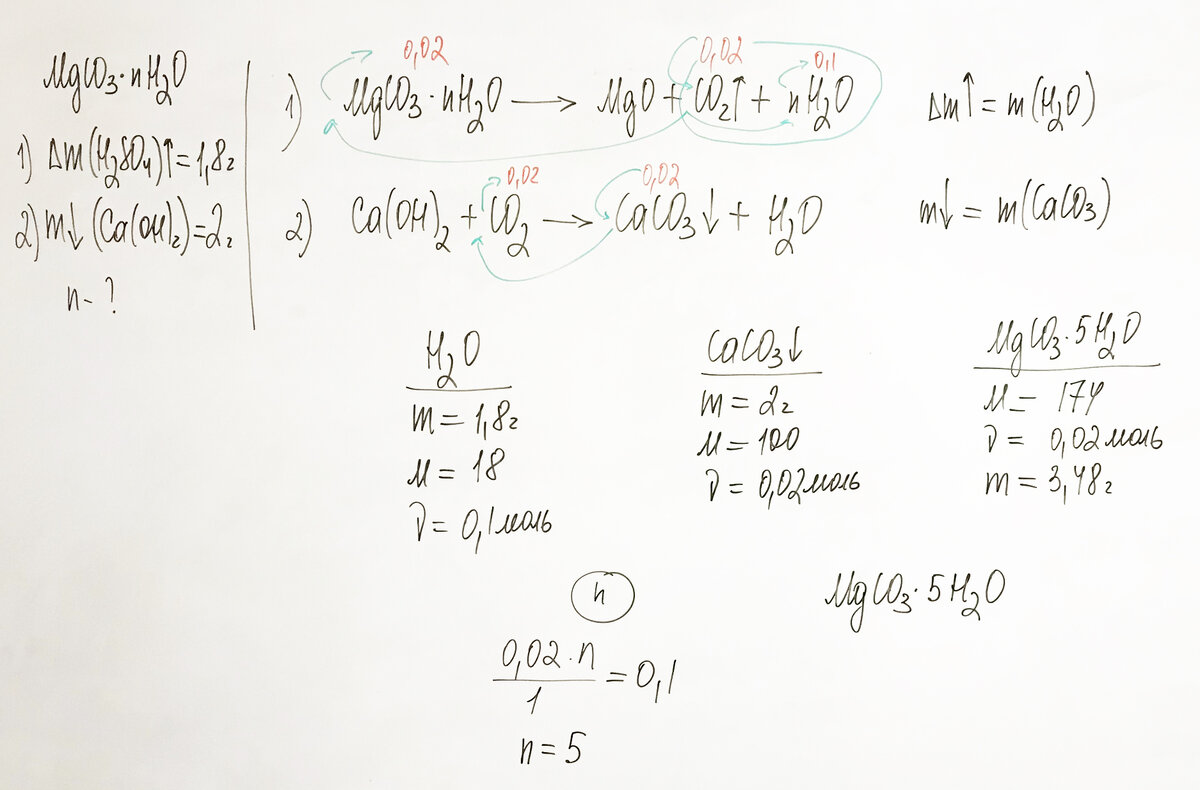 MgCO₃·nH₂O
1) Δm(H₂SO₄)↑=1,8г
2) m↓(Ca(OH)₂)=2г
n-?
0,02 0,02 0,1
1) MgCO₃·nH₂O → MgO + CO₂↑ + nH₂O Δm↑ = m(H₂O)
0,02 0,02
2) Ca(OH)₂ + CO₂ → CaCO₃↓ + H₂O m↓ = m(CaCO₃)
H₂O
m = 1,8г
M = 18
ν = 0,1моль
CaCO₃↓
m = 2г
M = 100
ν = 0,02моль
MgCO₃·5H₂O
M = 174
ν = 0,02моль
m = 3,48г
n
0,02·n/1 = 0,1
n = 5
MgCO₃·5H₂O